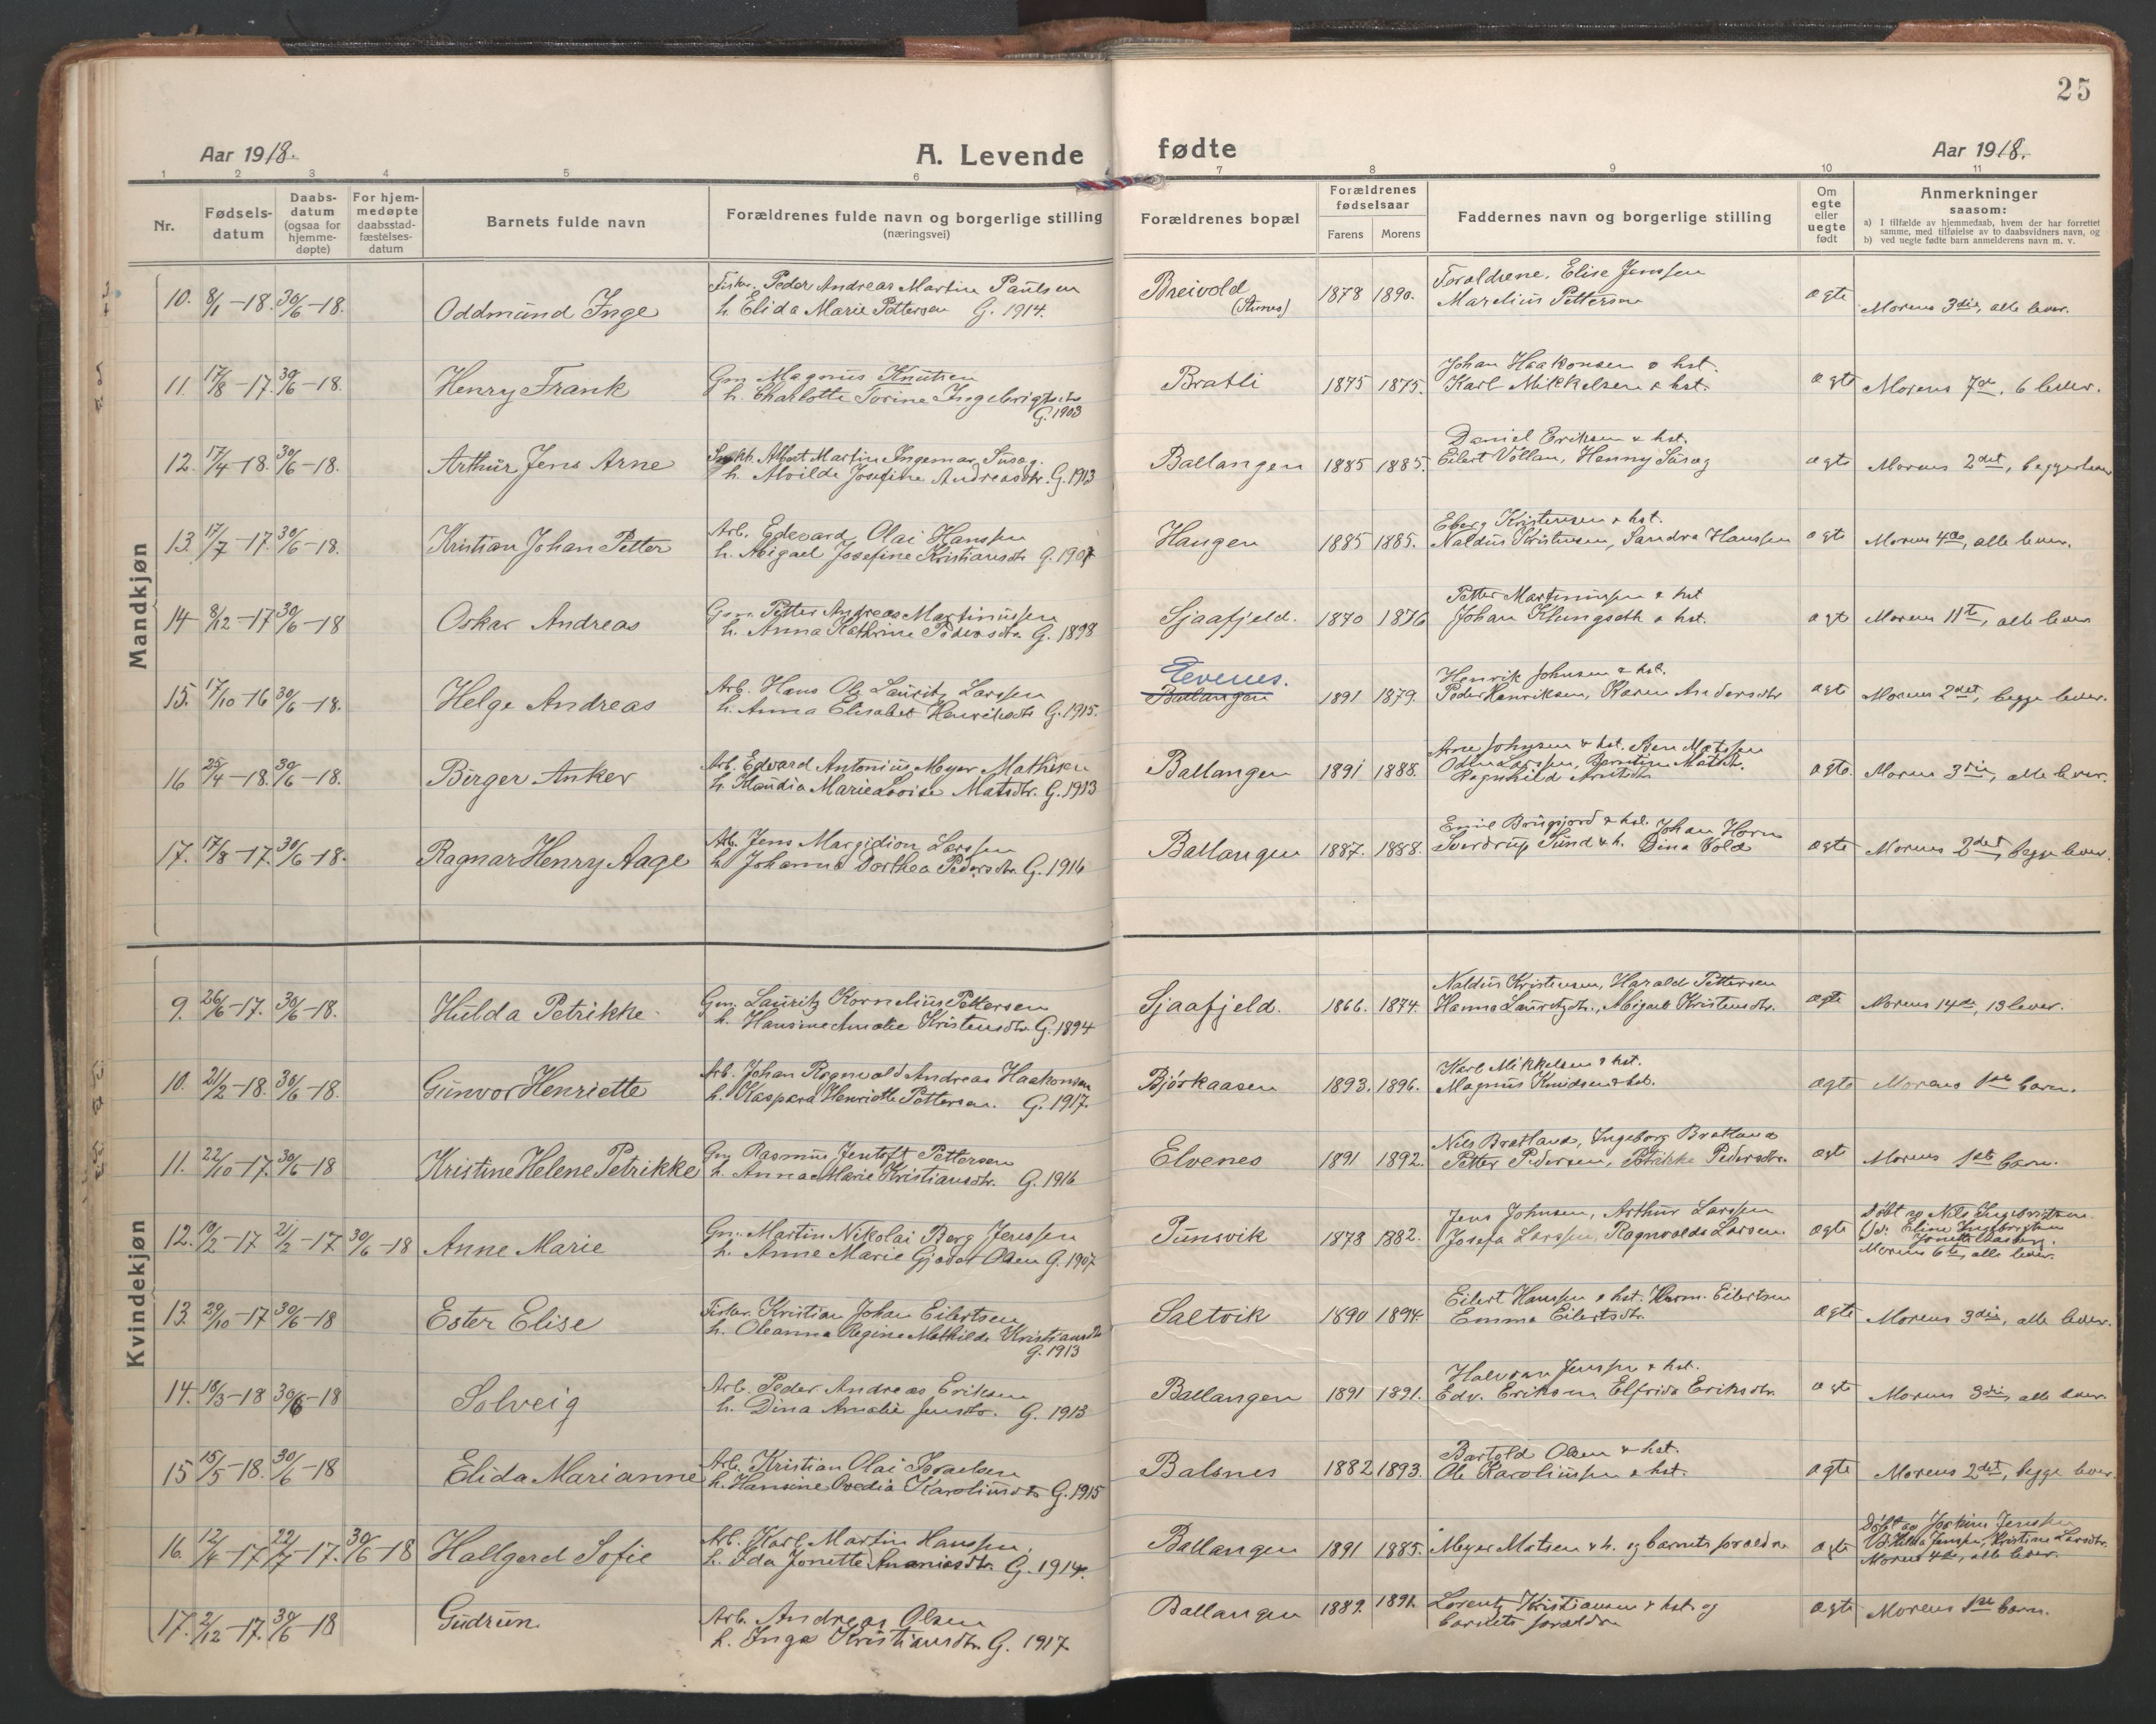 25
Aar 1918.
A. Levende
fødte
Aar 1918.
1 2 3 4 5 6 7 8 9 10 11
Nr.
Fødsels-
datum
Daabs-
datum
(ogsaa for
hjemme-
døpte)
For hjem-
medøpte
daabsstad-
fæstelses-
datum
Barnets fulde navn
Forældrenes fulde navn og borgerlige stilling
(næringsvei)
Forældrenes bopæl
Forældrenes
fødselsaar
Farens Morens
Faddernes navn og borgerlige stilling
Om
egte
eller
uegte
født
Anmerkninger
saasom:
a) I tilfælde av hjemmedaab, hvem der har forrettet
samme, med tilføielse av to daabsvidners navn, og
b) ved uegte fødte barn anmelderens navn m. v.
Mandkjøn
10. 8/1-18. 30/6-18. Oddmund Inge
Fisker. Peder Andreas Martin Paulsen
h. Elida Marie Pettersen G. 1914.
Breivold
1878 1890.
Foraldrene, Elise Jenssen
Marelius Pettersen
ægte
Morens 3die, alle lever.
11. 17/8-17. 30/6-18. Henry Frank
Gm. Magnus Knutsen
h. Charlotte Torine Ingebrigtsdtr
G. 1903
Bratli
1875 1875.
Johan Haakonsen & hst.
Karl Mikkelsen & hst.
ægte
Morens 7de, 6 lever.
12. 17/4-18. 30/6-18. Arthur Jens Arne
Albert Martin Ingemar
h. Alvilde Josefine Andreasdtr. G. 1913
Ballangen
1885 1885.
Daniel Eriksen & hst.
Eilert Vollan, Henny
ægte
Morens 2det, begge lever
13. 17/7-17. 30/6-18. Kristian Johan Petter
Arb. Edevard Olai Hanssen
h. Abigael Josefine Kristiansdtr G. 1907
Haugen
1885 1885.
Eberg Kristensen & hst.
Naldus Kristensen, Sandra Hanssen
ægte
Morens 4de, alle lever.
14 8/12-17 30/6-18 Oskar Andreas
Gm. Petter Andreas Martinussen
h. Anna Kathrine Pedersdtr. G. 1898
Sjaafjeld.
1870 1876
Petter Martinussen & hst
Johan Klungseth & hst.
ægt
Morens 11te, alle lever
15. 17/10-16 30/6-18. Helge Andreas
Arb. Hans Ole Lauritz Larssen
h. Anna Elisabet Henriksdtr G. 1915.
Evenes.
Ballangen
1891 1879.
Henrik Johnsen & hst.
Peder Henriksen, Karen Andersdtr
ægte
Morens 2det, begge lever.
16 25/4-18. 30/6-18. Birger Anker
Arb. Edvard Antonius Meyer Mathisen
h. Klaudia Marie Lovise Matsdtr. G. 1913
Ballangen
1891 1888.
Arne Johnsen & hst.
Odin Larssen, Berntine Matsdtr.
Ragnhild Arntsdtr
ægte.
Morens 3die, alle lever.
17. 17/8-17. 30/6-18. Ragnar Henry Aage
Arb. Jens Margidion Larssen
h. Johanna Dorthea Pedersdtr. G. 1916
Ballangen
1887. 1888.
Emil Bøgfjord & hst. Johan Horn
Sverdrup Sund & h. Dina Vold
ægte
Morens 2det, begge lever.
Kvindekjøn
9. 26/6-17. 30/6-18. Hulda Petrikke
Gm. Lauritz Kornelius Pettersen
h. Hansine Amalie Kristensdtr. G. 1894
Sjaafjeld.
1866. 1874.
Naldus Kristensen, Harald Pettersen
Hanna Lauritzdtr., Abigael Kristensdtr.
ægte
Morens 14de, 13 lever.
10. 21/2-18. 30/6-18. Gunvor Henriette
Arb. Johan Rognvald Andreas Haakonsen
h. Kaspara Henriette Pettersen. G. 1917.
Bjørkaasen
1893. 1896.
Karl Mikkelsen & hst.
Magnus Knudsen & hst.
ægte
Morens 1ste barn.
11. 22/10-17. 30/6-18 Kristine Helene Petrikke
Gm Rasmus Jentoft Pettersen
h. Anna Marie Kristiansdtr. G. 1916
Elvenes
1891 1892.
Nils Bratland, Ingeborg Bratland
Petter Pedersen, Petrikke Pedersdtr.
ægt
Morens 1ste barn.
12. 10/2-17 21/2-17 30/6-18 Anne Marie
Gm. Martin Nikolai Berg Jenssen
h. Anne Marie Gjødet Olsen G. 1907
Punsvik
1878 1882.
Jens Johnsen, Arthur Larssen
Josefa Larssen, Ragnvalda Larsen
ægte
Døbt av Nils Ingebrigtsen
V: Eline Ingebrigtsen
Morens 6te, alle lever.
13. 29/10-17 30/6-18 Ester Elise
Fisker. Kristian Johan Eilertsen
h. Oleanna Regine Mathilde Kristiansdtr
G. 1913
Saltvik
1890 1894.
Eilert Hanssen & hst. Herm. Eilertsen
Emma Eilertsdtr.
ægte
Morens 3die, alle lever.
14. 18/3-18 30/6-18 Solveig
Arb. Peder Andreas Eriksen
h. Dina Amalie Jensdtr. G. 1913
Ballangen
1891 1891.
Halvdan Jenssen & hst.
Edv. Eriksen, Elfrida Eriksdtr.
ægte
Morens 3die, alle lever.
15 15/5-18. 30/6-18 Elida Marianne
Arb. Kristian Olai Israelsen
h. Hansine Ovedia Karoliusdtr G. 1915
Balsnes
1882 1893.
Bartold Olsen & hst.
Ole Karoliussen & hst.
ægte
Morens 2det, begge lever.
16. 12/4-17 22/7-17. 30/6-18 Hallgerd Sofie
Arb. Karl Martin Hanssen.
h. Ida Jonette Ananiasdtr. G. 1914.
Ballangen
1891 1885.
Meyer Matsen & h. og barnets forældre
ægte
Døbt av Joakim Jenssen
V: Hilda Jenssen, Kristine Larsdtr.
Morens 4de, alle lever.
17. 2/12-17. 30/6-18 Gudrun
Arb. Andreas Olsen
h. Inga Kristiansdtr. G. 1917
Ballangen
1889. 1891.
Lorentz Kristiansen & hst. og
barnets forældre
ægte
Morens 1ste barn.